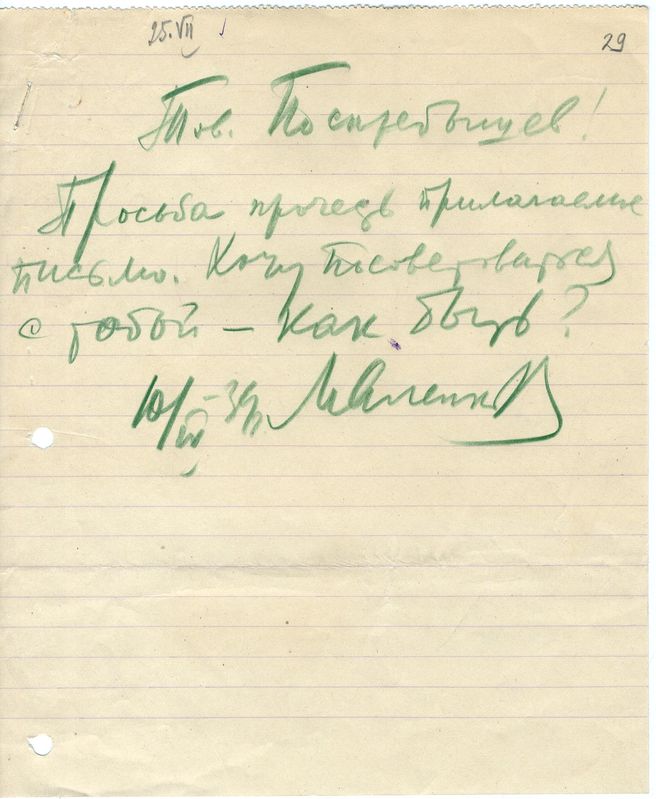 25.VII
29
Тов. Поскребышев!
Просьба прочесть прилагаемое
письмо. Хочу посоветоваться
с тобой — как быть?
10/VII-39г. Маленков